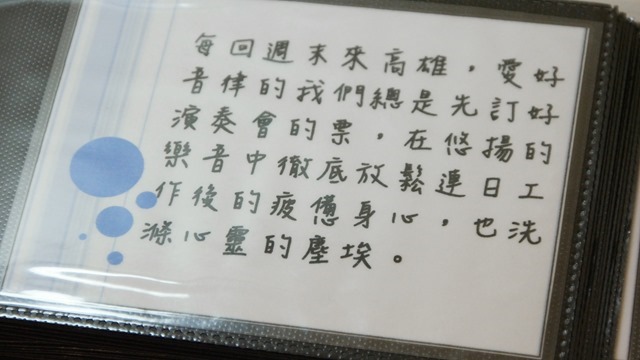 每回週末來高雄，愛好
音律的我們總是先訂好
演奏會的票，在悠揚的
樂音中徹底放鬆連日工
作後的疲憊身心，也洗
滌心靈的塵埃。